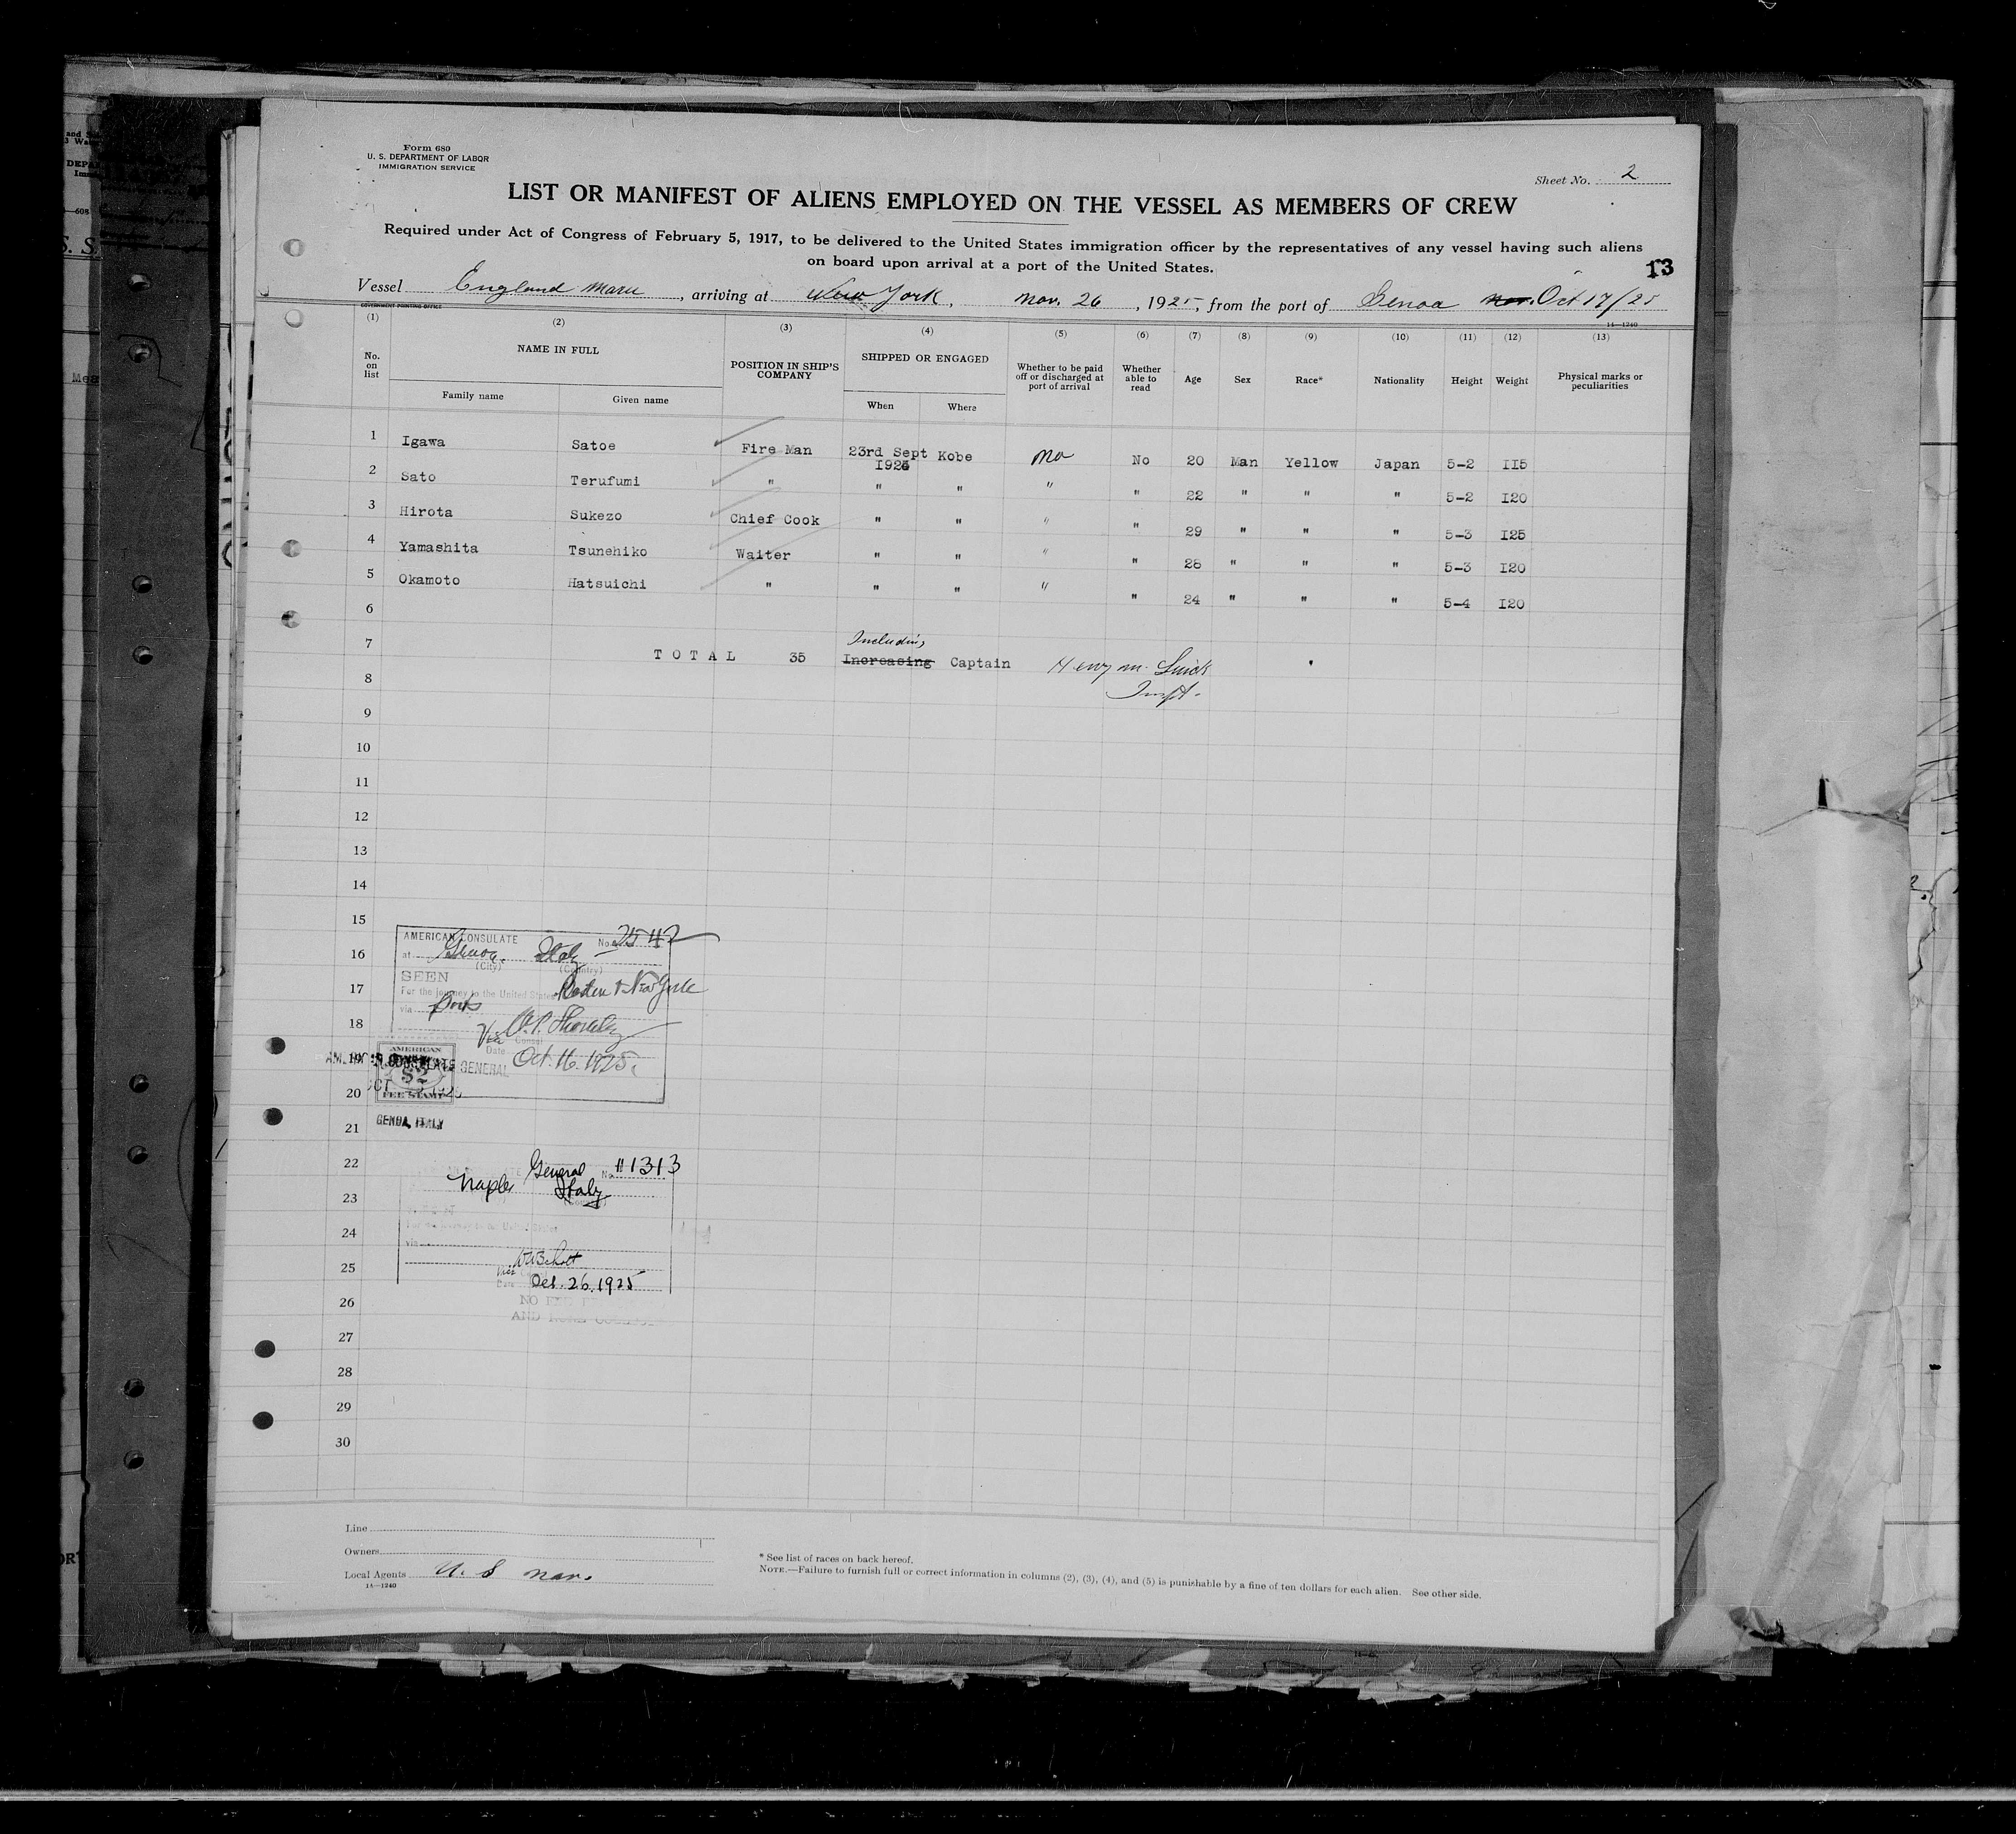 Form 680
U. S. DEPARTMENT OF LABOR
IMMIGRATION SERVICE
Sheet No. 2
LIST OR MANIFEST OF ALIENS EMPLOYED ON THE VESSEL AS MEMBERS OF CREW
Required under Act of Congress of February 5, 1917, to be delivered to the United States immigration officer by the representatives of any vessel having such aliens
on board upon arrival at a port of the United States.
13
Vessel England Maru, arriving at New York, Nov. 26, 1925, from the port of Genoa Nov. Oct 17/25
GOVERNMENT PRINTING OFFICE
14—1240
(1) (2) (3) (4) (5) (6) (7) (8) (9) (10) (11) (12) (13)
No. on list NAME IN FULL POSITION IN SHIP'S COMPANY SHIPPED OR ENGAGED Whether to be paid off or discharged at port of arrival Whether able to read Age Sex Race* Nationality Height Weight Physical marks or peculiarities
Family name Given name When Where
1 Igawa Satoe Fire Man 23rd Sept 1925 Kobe No No 20 Man Yellow Japan 5-2 II5
2 Sato Terufumi " " " " " 22 " " " 5-2 I20
3 Hirota Sukezo Chief Cook " " " " 29 " " " 5-3 I25
4 Yamashita Tsunehiko Waiter " " " " 28 " " " 5-3 I20
5 Okamoto Hatsuichi " " " " " 24 " " " 5-4 I20
6
7 Including
TOTAL 35 Increasing Captain Henry M.
8 Inspt.
9
10
11
12
13
14
15
AMERICAN CONSULATE No. 2542
16 at Genoa. Italy
(City) (Country)
SEEN
17 For the journey to the United States Boston & New York
via ports
18 Vice Consul
Date Oct. 16. 1925.
19 AMERICAN CONSULATE GENERAL
AMERICAN
$2
FEE STAMP
20 OCT 1925
21 GENOA, ITALY
22 General No. 1313
23 Naples Italy
24 For the journey to the United States
via
25 Vice
Date Oct. 26. 1925
26 NO
AND
27
28
29
30
Line
Owners
Local Agents U. S. Nav.
14—1240
* See list of races on back hereof.
NOTE.—Failure to furnish full or correct information in columns (2), (3), (4), and (5) is punishable by a fine of ten dollars for each alien. See other side.